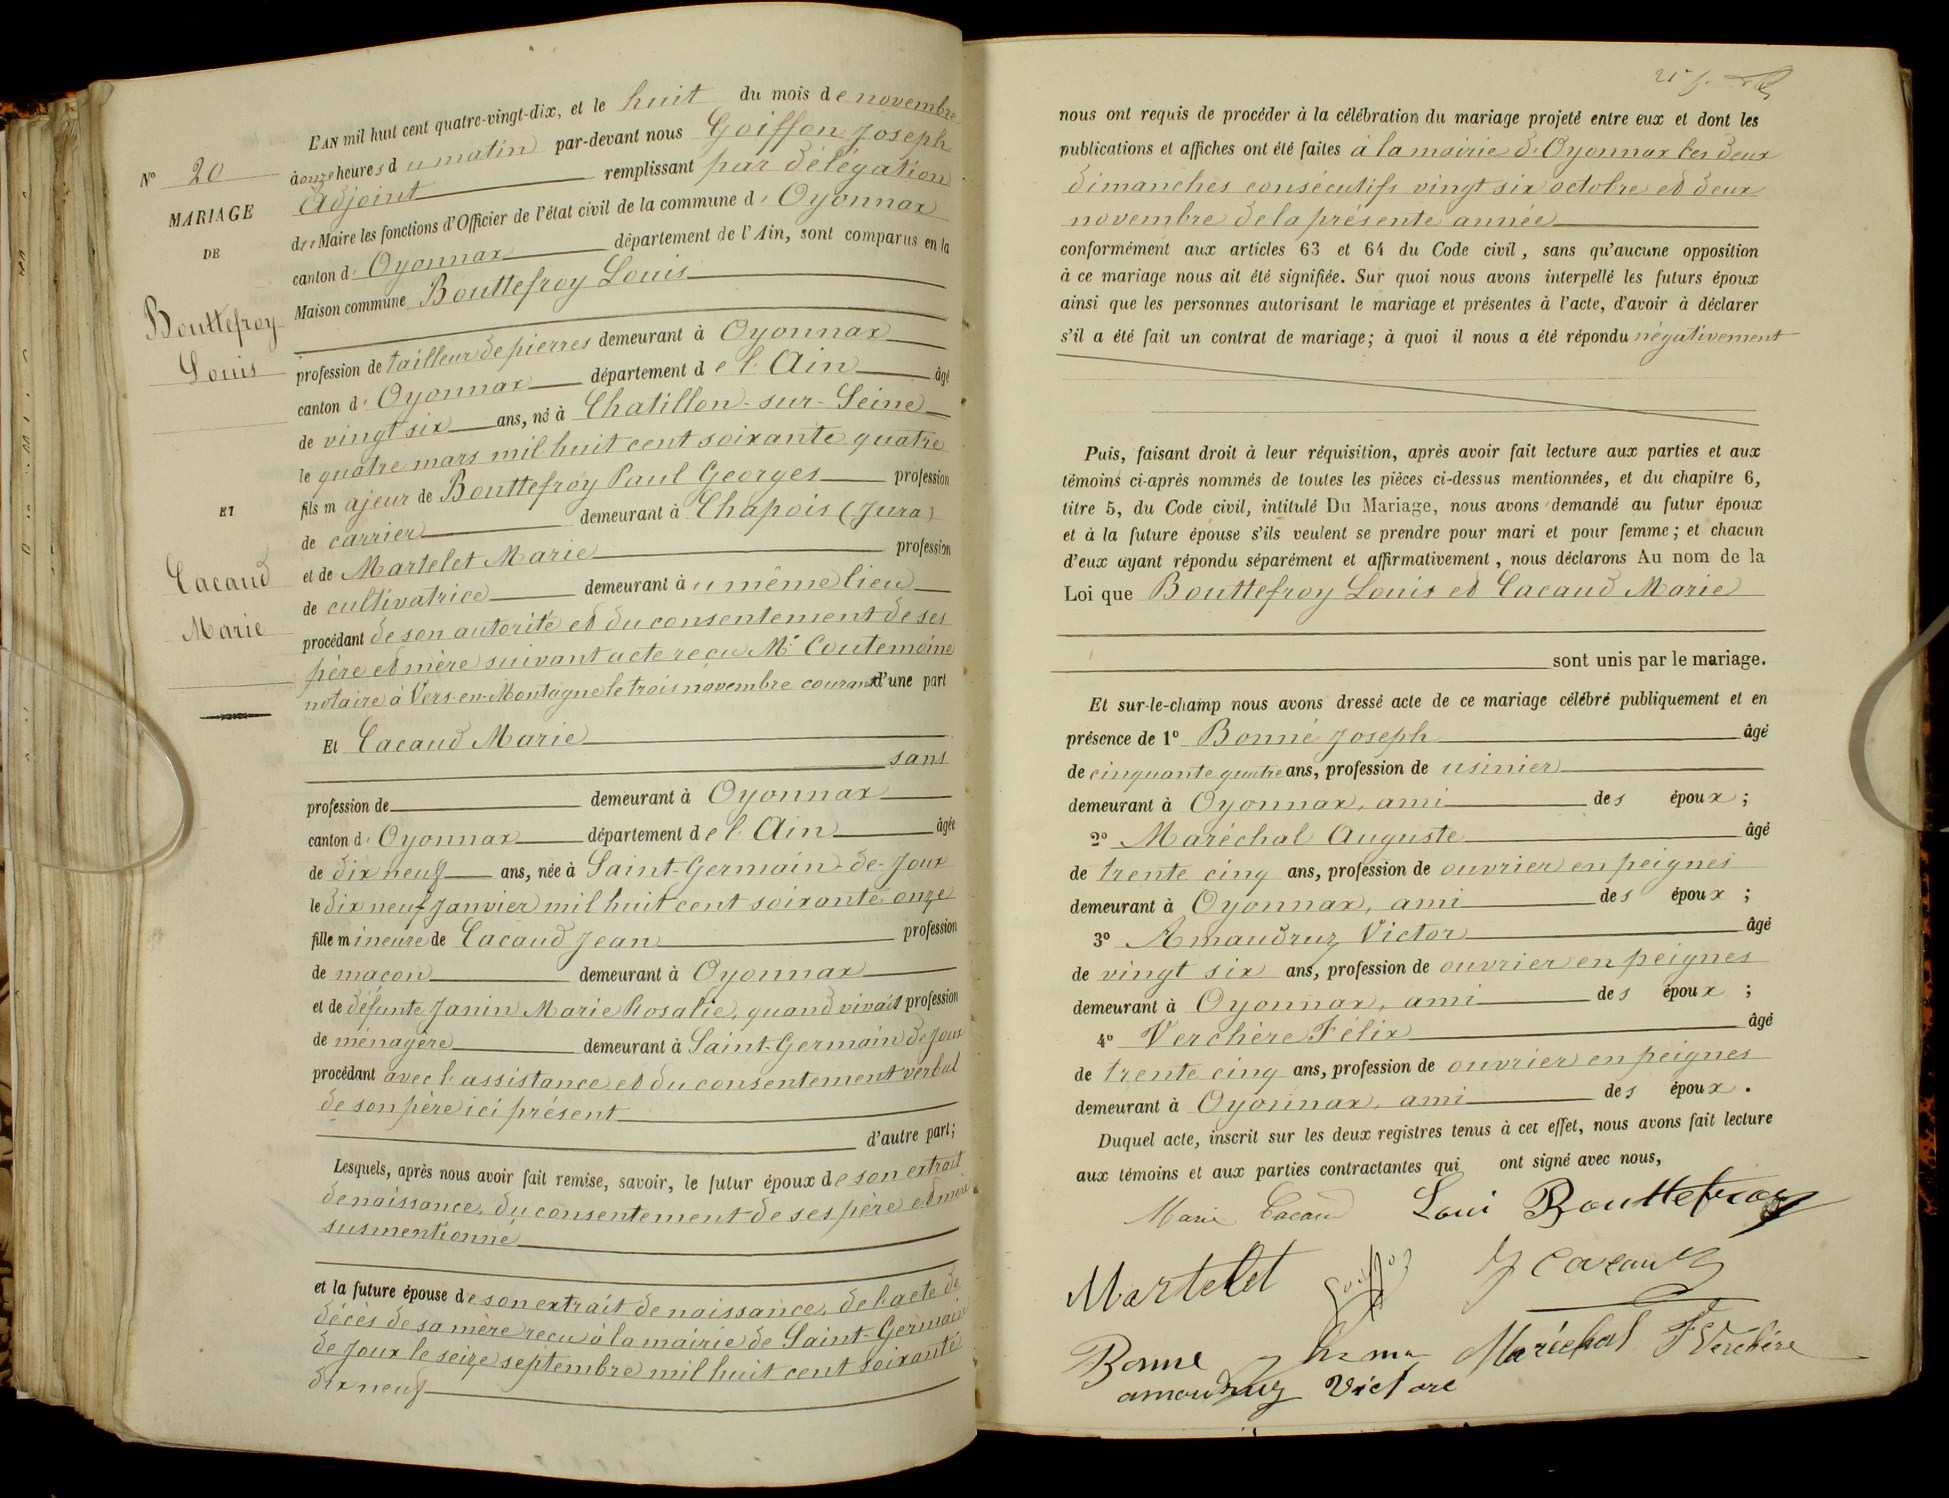 N° 20
MARIAGE
DE
Bouttefroy
Louis
ET
Cacaud
Marie
L'AN mil huit cent quatre-vingt-dix, et le huit du mois de novembre
à onze heures du matin par-devant nous Goiffon Joseph
Adjoint remplissant par délégation
du Maire les fonctions d'Officier de l'état civil de la commune d' Oyonnax
canton d' Oyonnax département de l'Ain, sont comparus en la
Maison commune Bouttefroy Louis
profession de tailleur de pierres demeurant à Oyonnax
canton d' Oyonnax département de l'Ain âgé
de vingt six ans, né à Chatillon-sur-Seine
le quatre mars mil huit cent soixante quatre
fils majeur de Bouttefroy Paul Georges profession
de carrier demeurant à Chapois (Jura)
et de Martelet Marie profession
de cultivatrice demeurant au même lieu
procédant de son autorité et du consentement de ses
père et mère suivant acte reçu Me Coutemoine
notaire à Vers-en-Montagne le trois novembre courant d'une part
Et Cacaud Marie
sans
profession de demeurant à Oyonnax
canton d' Oyonnax département de l'Ain âgée
de dix neuf ans, née à Saint-Germain-de-Joux
le dix neuf Janvier mil huit cent soixante onze
fille mineure de Cacaud Jean profession
de maçon demeurant à Oyonnax
et de défunte Janin Marie Rosalie, quand vivait profession
de ménagère demeurant à Saint-Germain de Joux
procédant avec l'assistance et du consentement verbal
de son père ici présent
d'autre part;
Lesquels, après nous avoir fait remise, savoir, le futur époux de son extrait
de naissance, du consentement de ses père et mère
susmentionné
et la future épouse de son extrait de naissance, de l'acte de
décès de sa mère reçu à la mairie de Saint-Germain
de Joux le seize septembre mil huit cent soixante
dix neuf
nous ont requis de procéder à la célébration du mariage projeté entre eux et dont les
publications et affiches ont été faites à la mairie d'Oyonnax les deux
dimanches consécutifs vingt six octobre et deux
novembre de la présente année
conformément aux articles 63 et 64 du Code civil, sans qu'aucune opposition
à ce mariage nous ait été signifiée. Sur quoi nous avons interpellé les futurs époux
ainsi que les personnes autorisant le mariage et présentes à l'acte, d'avoir à déclarer
s'il a été fait un contrat de mariage; à quoi il nous a été répondu négativement
Puis, faisant droit à leur réquisition, après avoir fait lecture aux parties et aux
témoins ci-après nommés de toutes les pièces ci-dessus mentionnées, et du chapitre 6,
titre 5, du Code civil, intitulé Du Mariage, nous avons demandé au futur époux
et à la future épouse s'ils veulent se prendre pour mari et pour femme; et chacun
d'eux ayant répondu séparément et affirmativement, nous déclarons Au nom de la
Loi que Bouttefroy Louis et Cacaud Marie
sont unis par le mariage.
Et sur-le-champ nous avons dressé acte de ce mariage célébré publiquement et en
présence de 1° Bonne Joseph âgé
de cinquante quatre ans, profession de usinier
demeurant à Oyonnax, ami des époux;
2° Maréchal Auguste âgé
de trente cinq ans, profession de ouvrier en peignes
demeurant à Oyonnax, ami des époux;
3° Amaudruz Victor âgé
de vingt six ans, profession de ouvrier en peignes
demeurant à Oyonnax, ami des époux;
4° Verchère Félix âgé
de trente cinq ans, profession de ouvrier en peignes
demeurant à Oyonnax, ami des époux.
Duquel acte, inscrit sur les deux registres tenus à cet effet, nous avons fait lecture
aux témoins et aux parties contractantes qui ont signé avec nous,
Marie Cacaud Loui Bouttefroy
Martelet Goiffon J Cacaud
Bonne Maréchal F Verchère
amoudruz Victore